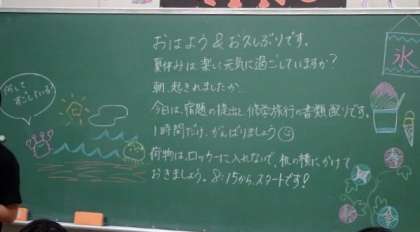 おはよう&お久しぶりです。
夏休みは、楽しく元気に過ごしていますか?
朝、起きれましたか。
今日は、宿題の提出と修学旅行の書類配りです。
1時間だけ、がんばりましょう
荷物は、ロッカーに入れないで、机の横にかけて
おきましょう。8:15から、スタートです!
何して
すごしている?
氷